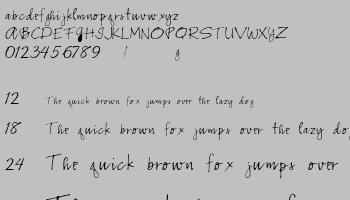 abcdefghijklmnopqrstuvwxyz
ABCDEFGHIJKLMNOPQRSTUVWXYZ
0123456789 ! g
12 The quick brown fox jumps over the lazy dog
18 The quick brown fox jumps over the lazy do
24 The quick brown fox jumps over